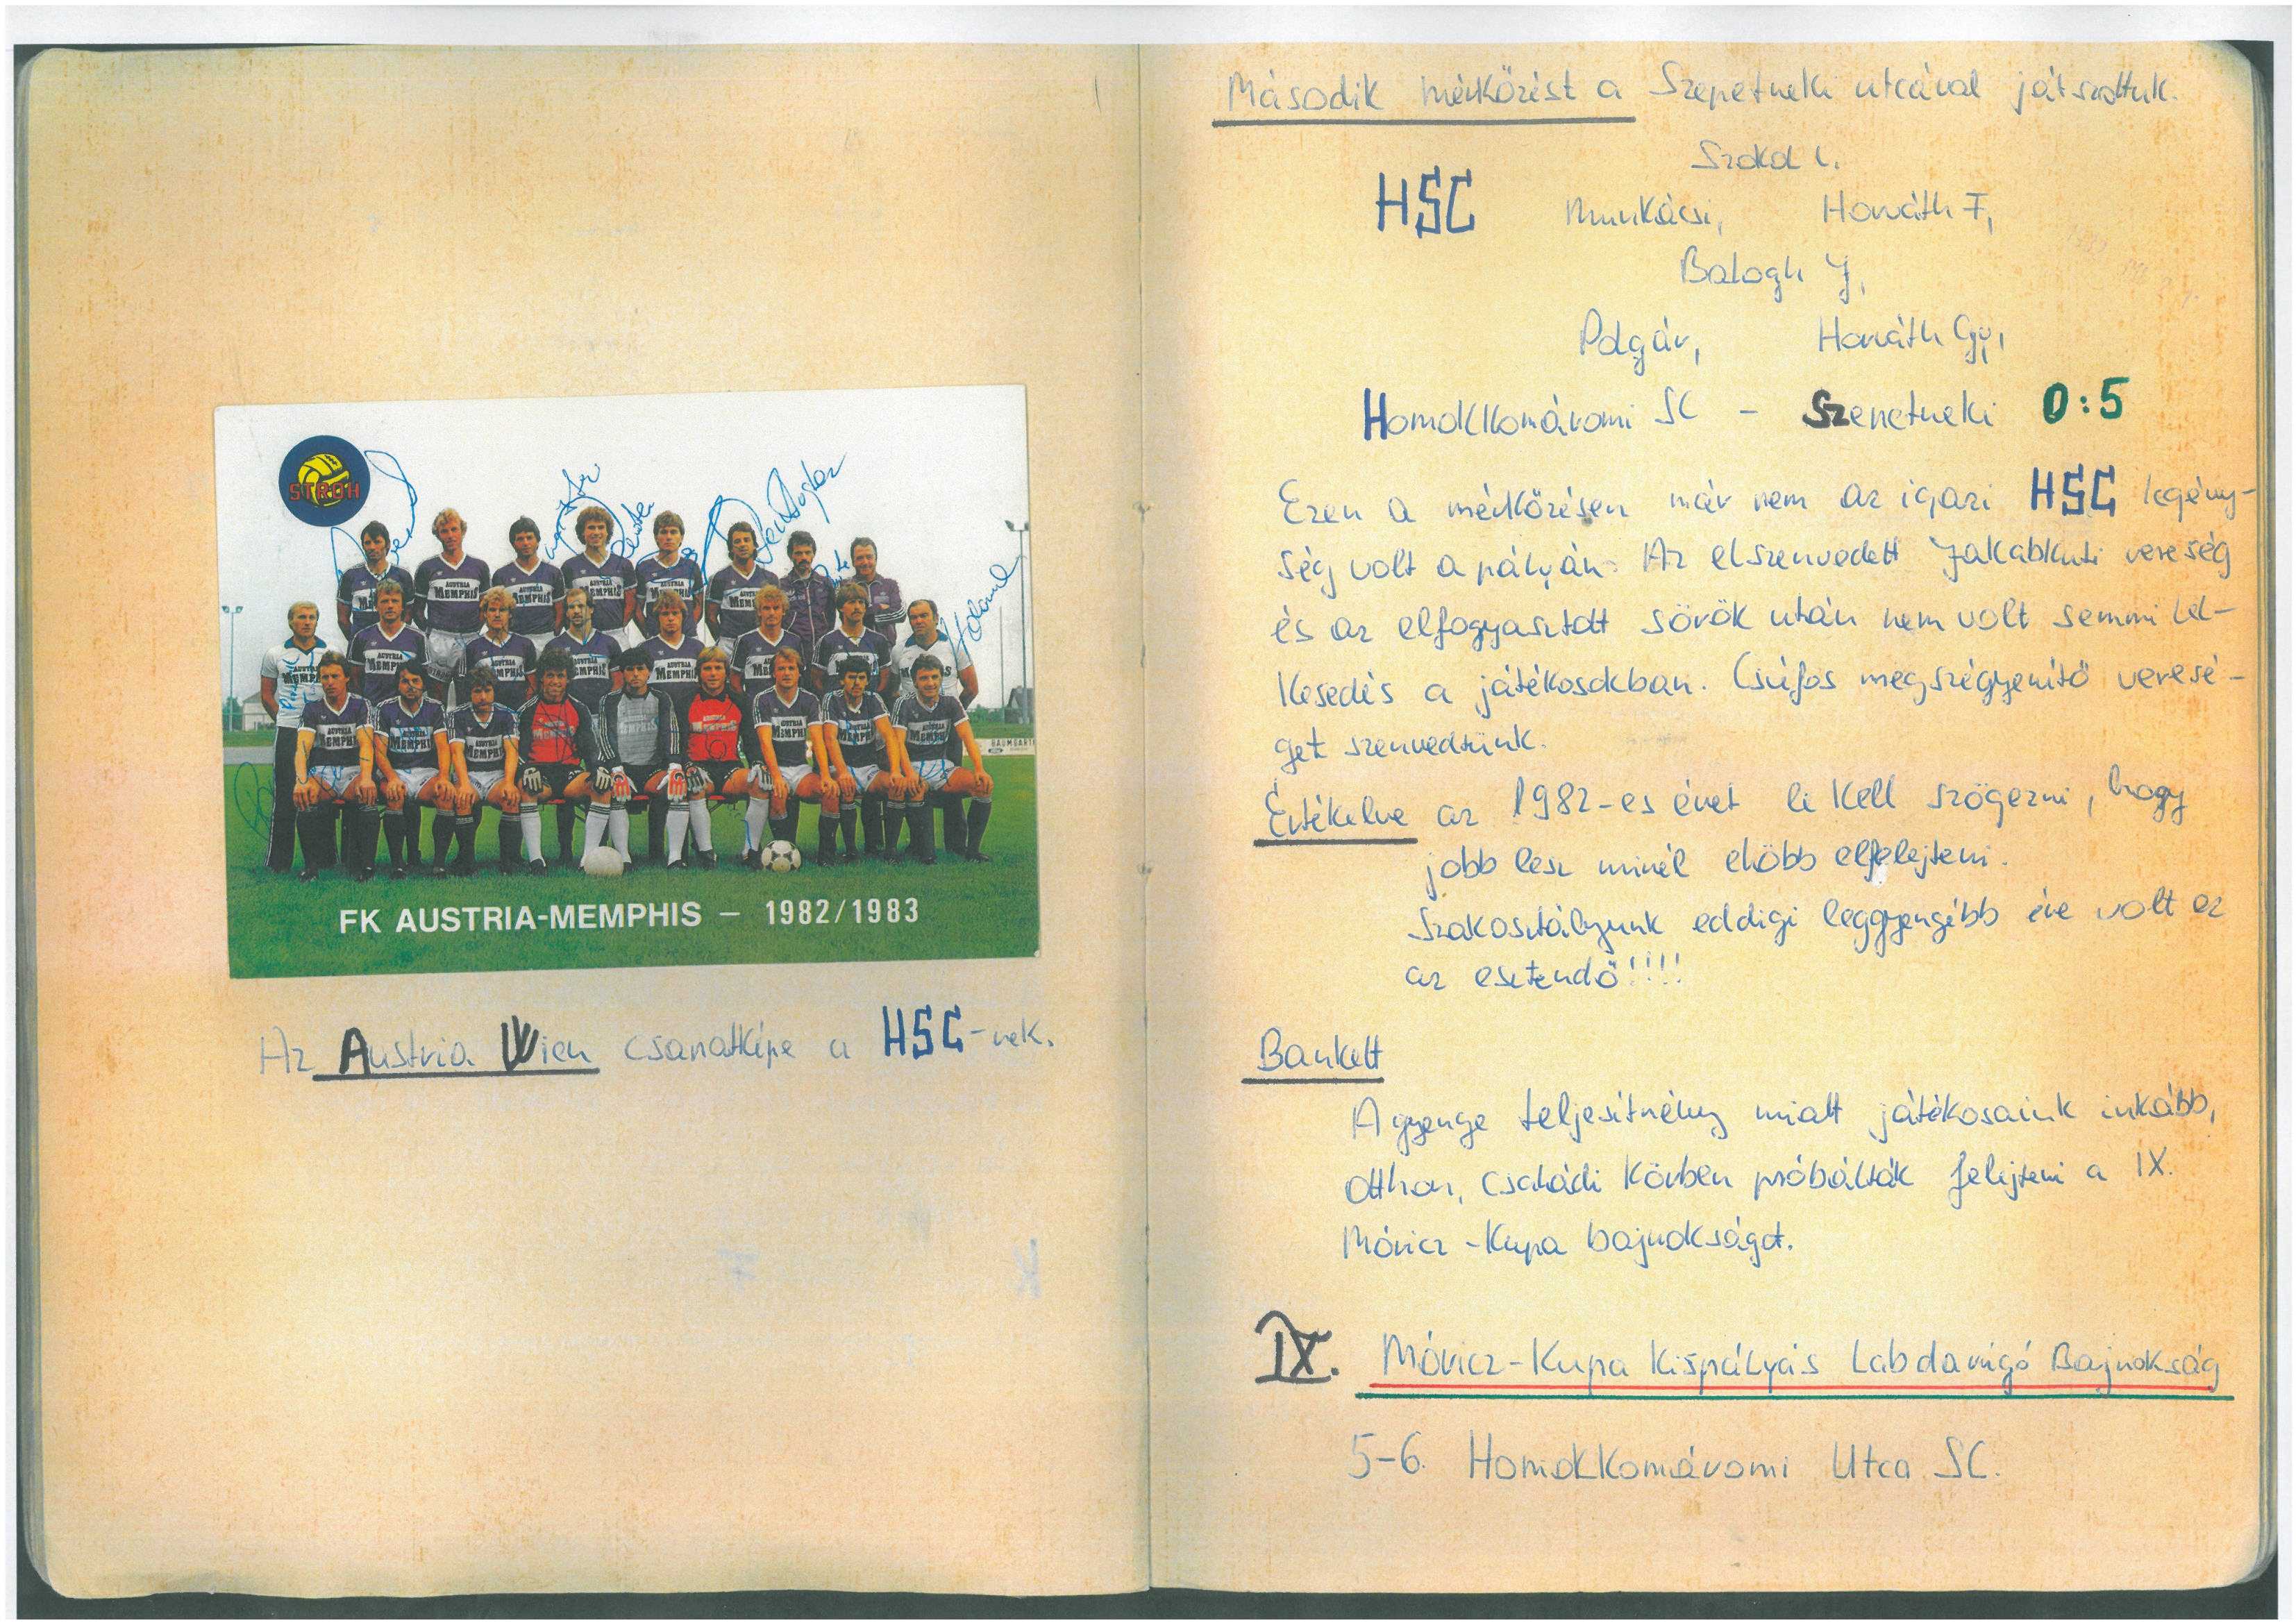 STROH
AUSTRIA MEMPHIS
BAUMGART
FK AUSTRIA-MEMPHIS – 1982/1983
Az Austria Wien csapatképe a HSC-nek.
Második mérkőzést a Szepetneki utcával játszottuk.
Szokol I.
HSC Munkácsi, Horváth F,
Balogh J,
Polgár, Horváth Gy,
Homokkomáromi SC – Szepetneki 0:5
Ezen a mérkőzésen már nem az igazi HSC legény-
ség volt a pályán. Az elszenvedett Jakabkuti vereség
és az elfogyasztott sörök után nem volt semmi lel-
kesedés a játékosokban. Csúfos megszégyenítő veresé-
get szenvedtünk.
Értékelve az 1982-es évet le kell szögezni, hogy
jobb lesz minél előbb elfelejteni.
Szakosztályunk eddigi leggyengébb éve volt ez
az esztendő!!!!
Bankett
A gyenge teljesítmény miatt játékosaink inkább,
otthon, családi körben próbálták felejteni a IX.
Móricz-Kupa bajnokságot.
IX. Móricz-Kupa Kispályás Labdarúgó Bajnokság
5-6. Homokkomáromi Utca SC.